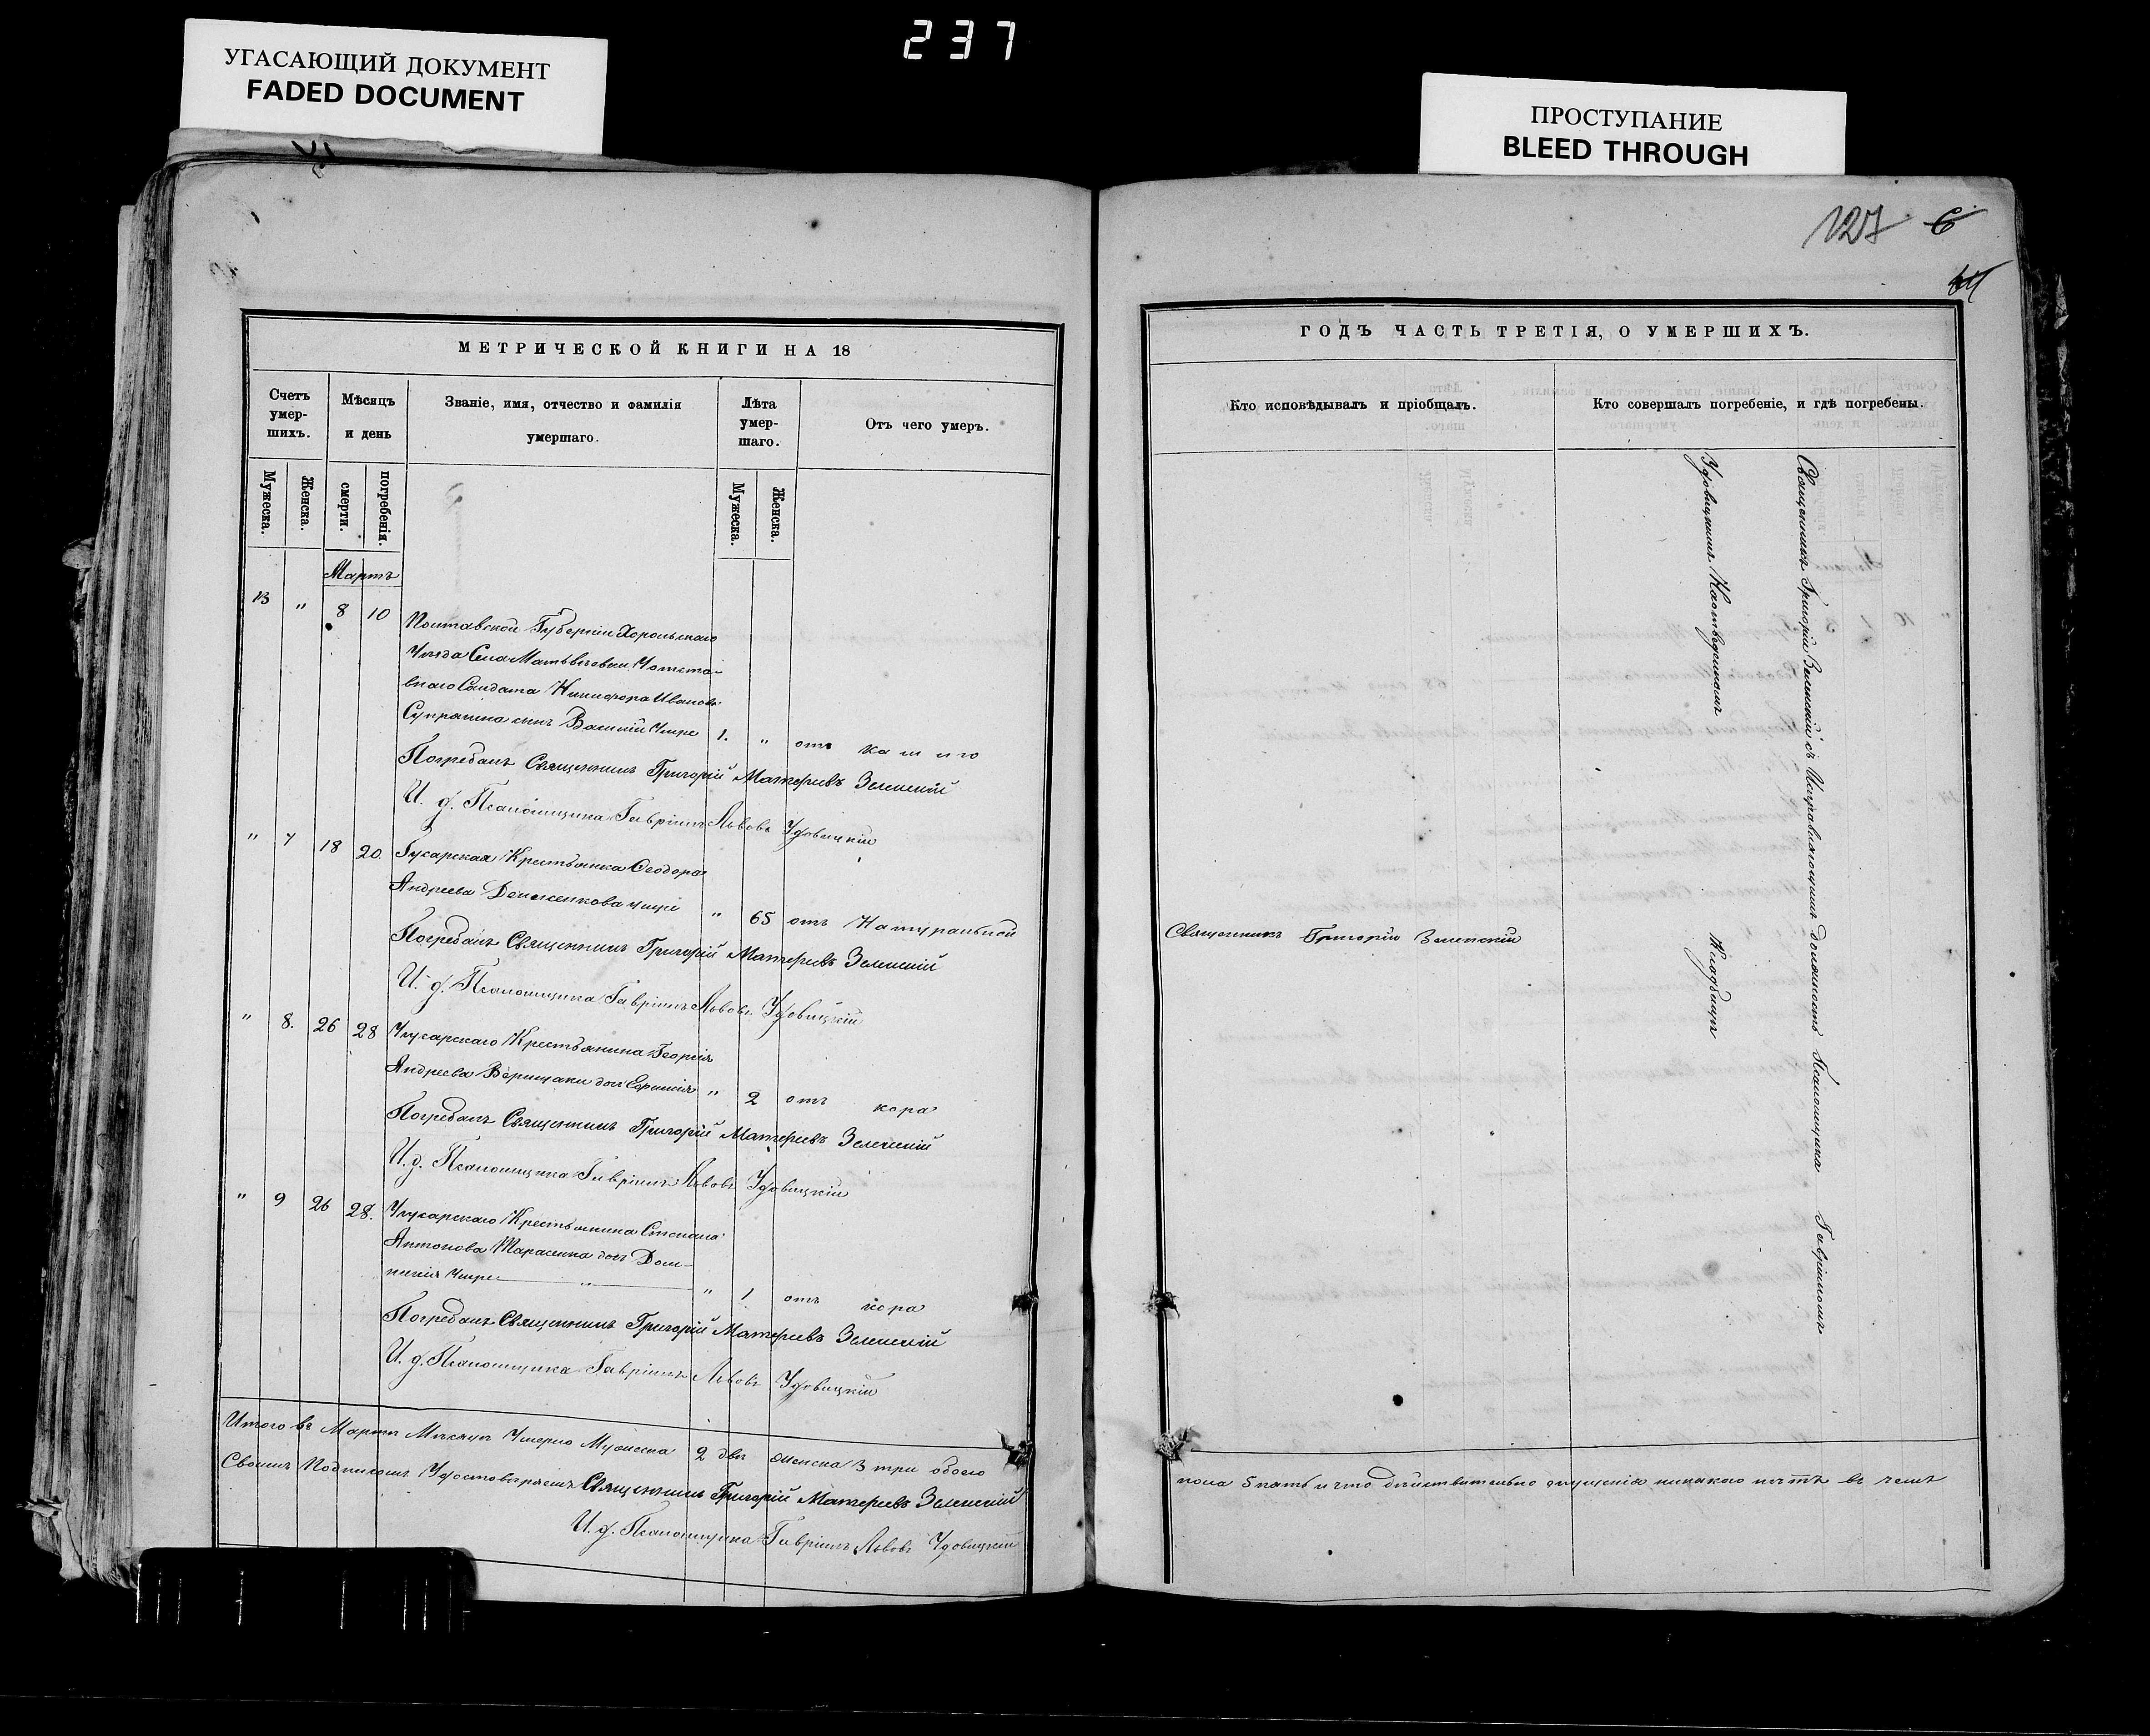 237
УГАСАЮЩИЙ ДОКУМЕНТ
FADED DOCUMENT
ПРОСТУПАНИЕ
BLEED THROUGH
127 6
МЕТРИЧЕСКОЙ КНИГИ НА 18
Счетъ умер-шихъ.
Мѣсяцъ и день
Званіе, имя, отчество и фамилія умершаго.
Лѣта умер-шаго.
Отъ чего умеръ.
Мужеска.
Женска.
смерти.
погребенія.
Мужеска.
Женска.
Мартъ
13 " 8 10 Полтавской Губерніи Хорольскаго
Уѣзда Села Матвѣевки Отста-
внаго Солдата Никифора Иванова
сынъ Василій Умре 1. " отъ кашлю
Погребалъ Священникъ Григорій Матѳіевъ Зеленскій
И. д. Псаломщика Гавріилъ Львовъ Удовицкій
" 7 18 20 Гусарская Крестьянка Ѳеодора
Андреева " 65 отъ Натуральной
Погребалъ Священникъ Григорій Матѳіевъ Зеленскій
И. д. Псаломщика Гавріилъ Львовъ Удовицкій
" 8. 26 28 Крестьянина Георгія
Андреева Верещаки доч " 2 отъ кора
Погребалъ Священникъ Григорій Матѳіевъ Зеленскій
И. д. Псаломщика Гавріилъ Львовъ Удовицкій
" 9 26 28. Крестьянина Степана
Антонова доч Дом-
никія Умре " " 1 отъ кора
Погребалъ Священникъ Григорій Матѳіевъ Зеленскій
И. д. Псаломщика Гавріилъ Львовъ Удовицкій
Итого въ Мартѣ Мѣсяцѣ Умерло Мужеска 2 двѣ женска 3 три обоего
Своимъ Подписомъ Удостовѣряемъ Священникъ Григорій Матѳіевъ Зеленскій
И. д. Псаломщика Гавріилъ Львовъ Удовицкій
ГОДЪ ЧАСТЬ ТРЕТІЯ, О УМЕРШИХЪ.
Кто исповѣдывалъ и пріобщалъ.
Кто совершалъ погребеніе, и гдѣ погребены.
Священникъ Григорій Зеленскій
Священникъ Григорій Зеленскій съ Исправляющимъ должность Псаломщика Гавріиломъ
Удовицкимъ. На Кладбищѣ
пола 5 пять и что дѣйствительно опущенія никакого нѣтъ въ чемъ